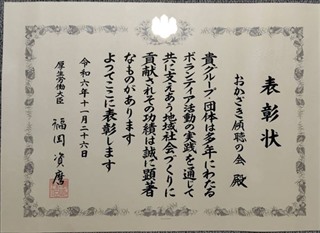 表彰状
おかざき傾聴の会 殿
貴グループ・団体は多年にわたる
ボランティア活動の実践を通じて
共に支えあう地域社会づくりに
貢献されその功績は誠に顕著
なものがあります
よってここに表彰します
令和六年十一月二十六日
厚生労働大臣
福岡資麿